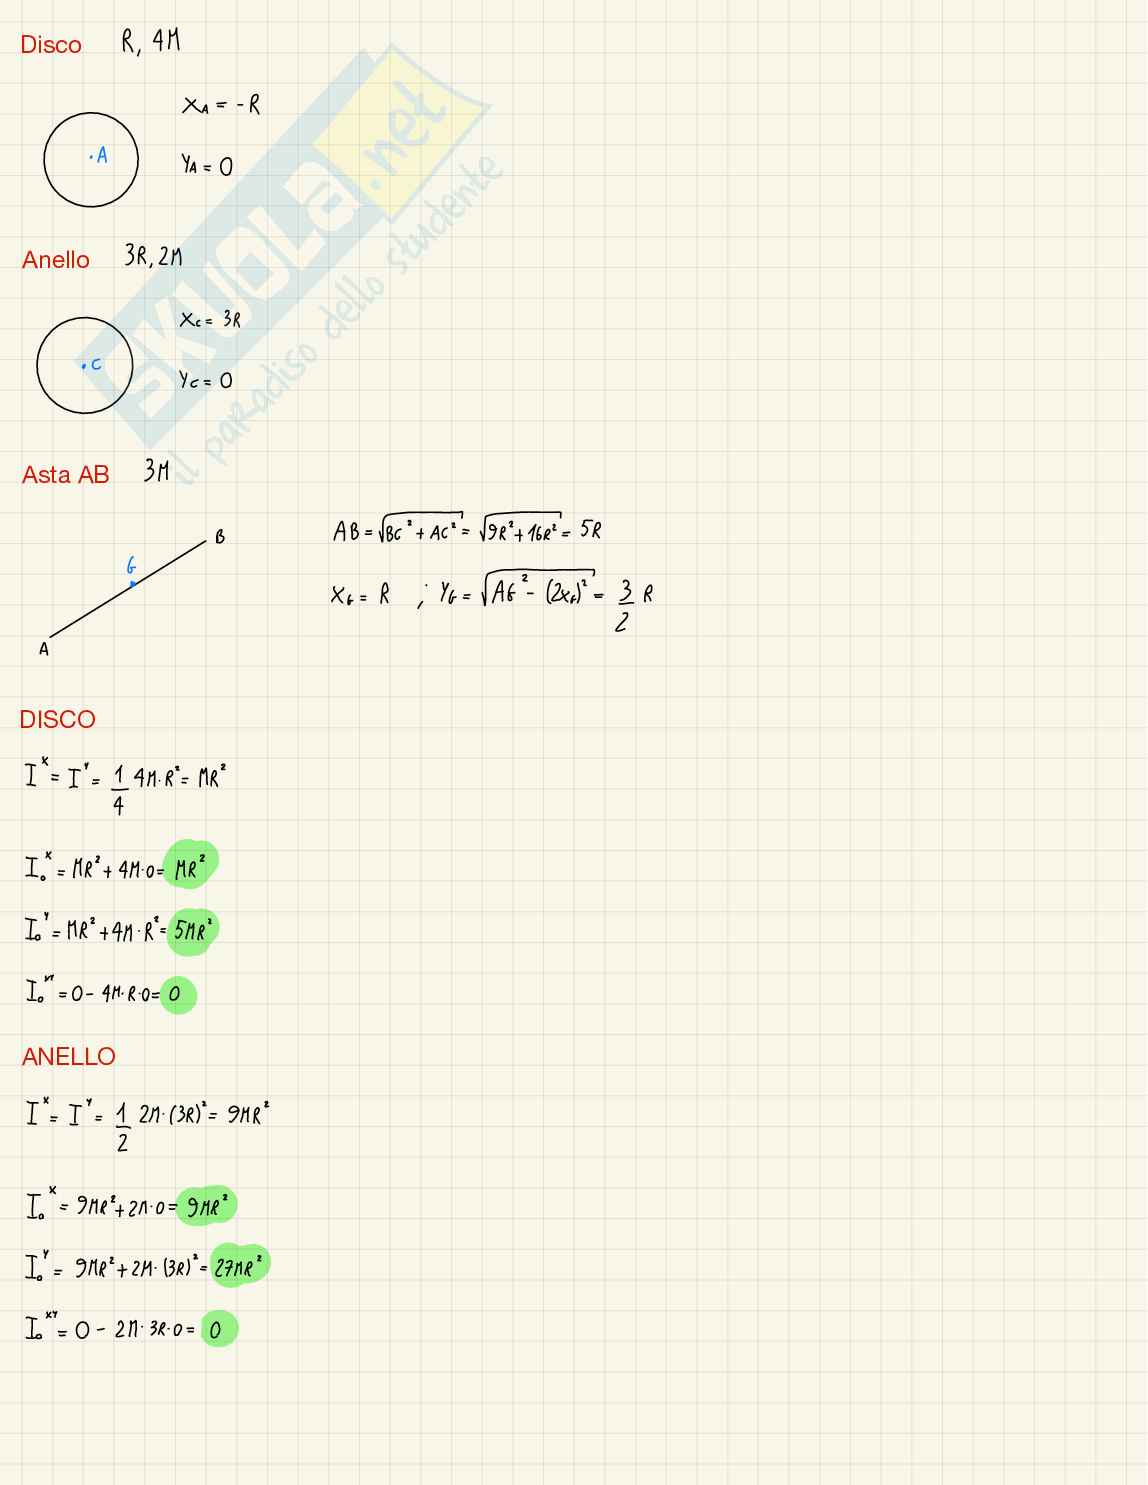 Disco R, 4M
x_A = -R
.A
y_A = 0
Anello 3R, 2M
x_C = 3R
.C
y_C = 0
Asta AB 3M
AB = √(BC² + AC²) = √(9R² + 16R²) = 5R
B
G
x_G = R ; y_G = √(AG² - (2x_G)²) = 3/2 R
A
DISCO
I^x = I^y = 1/4 4M·R² = MR²
I_o^x = MR² + 4M·0 = MR²
I_o^y = MR² + 4M·R² = 5MR²
I_o^xy = 0 - 4M·R·0 = 0
ANELLO
I^x = I^y = 1/2 2M·(3R)² = 9MR²
I_o^x = 9MR² + 2M·0 = 9MR²
I_o^y = 9MR² + 2M·(3R)² = 27MR²
I_o^xy = 0 - 2M·3R·0 = 0
SKUOLA.net
il paradiso dello studente